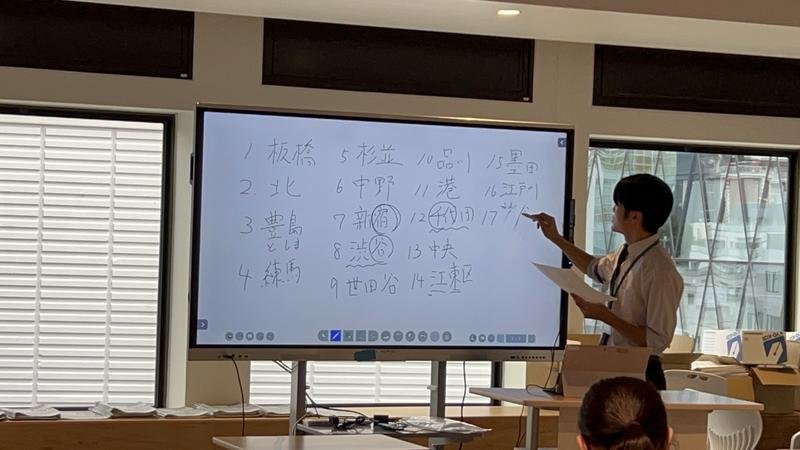 1 板橋
2. 北
3 豊島
としま
4 練馬
5 杉並
6 中野
7 新宿
8 渋谷
9 世田谷
10 品川
11 港
12 千代田
13 中央
14 江東区
15 墨田
16 江戸川
17